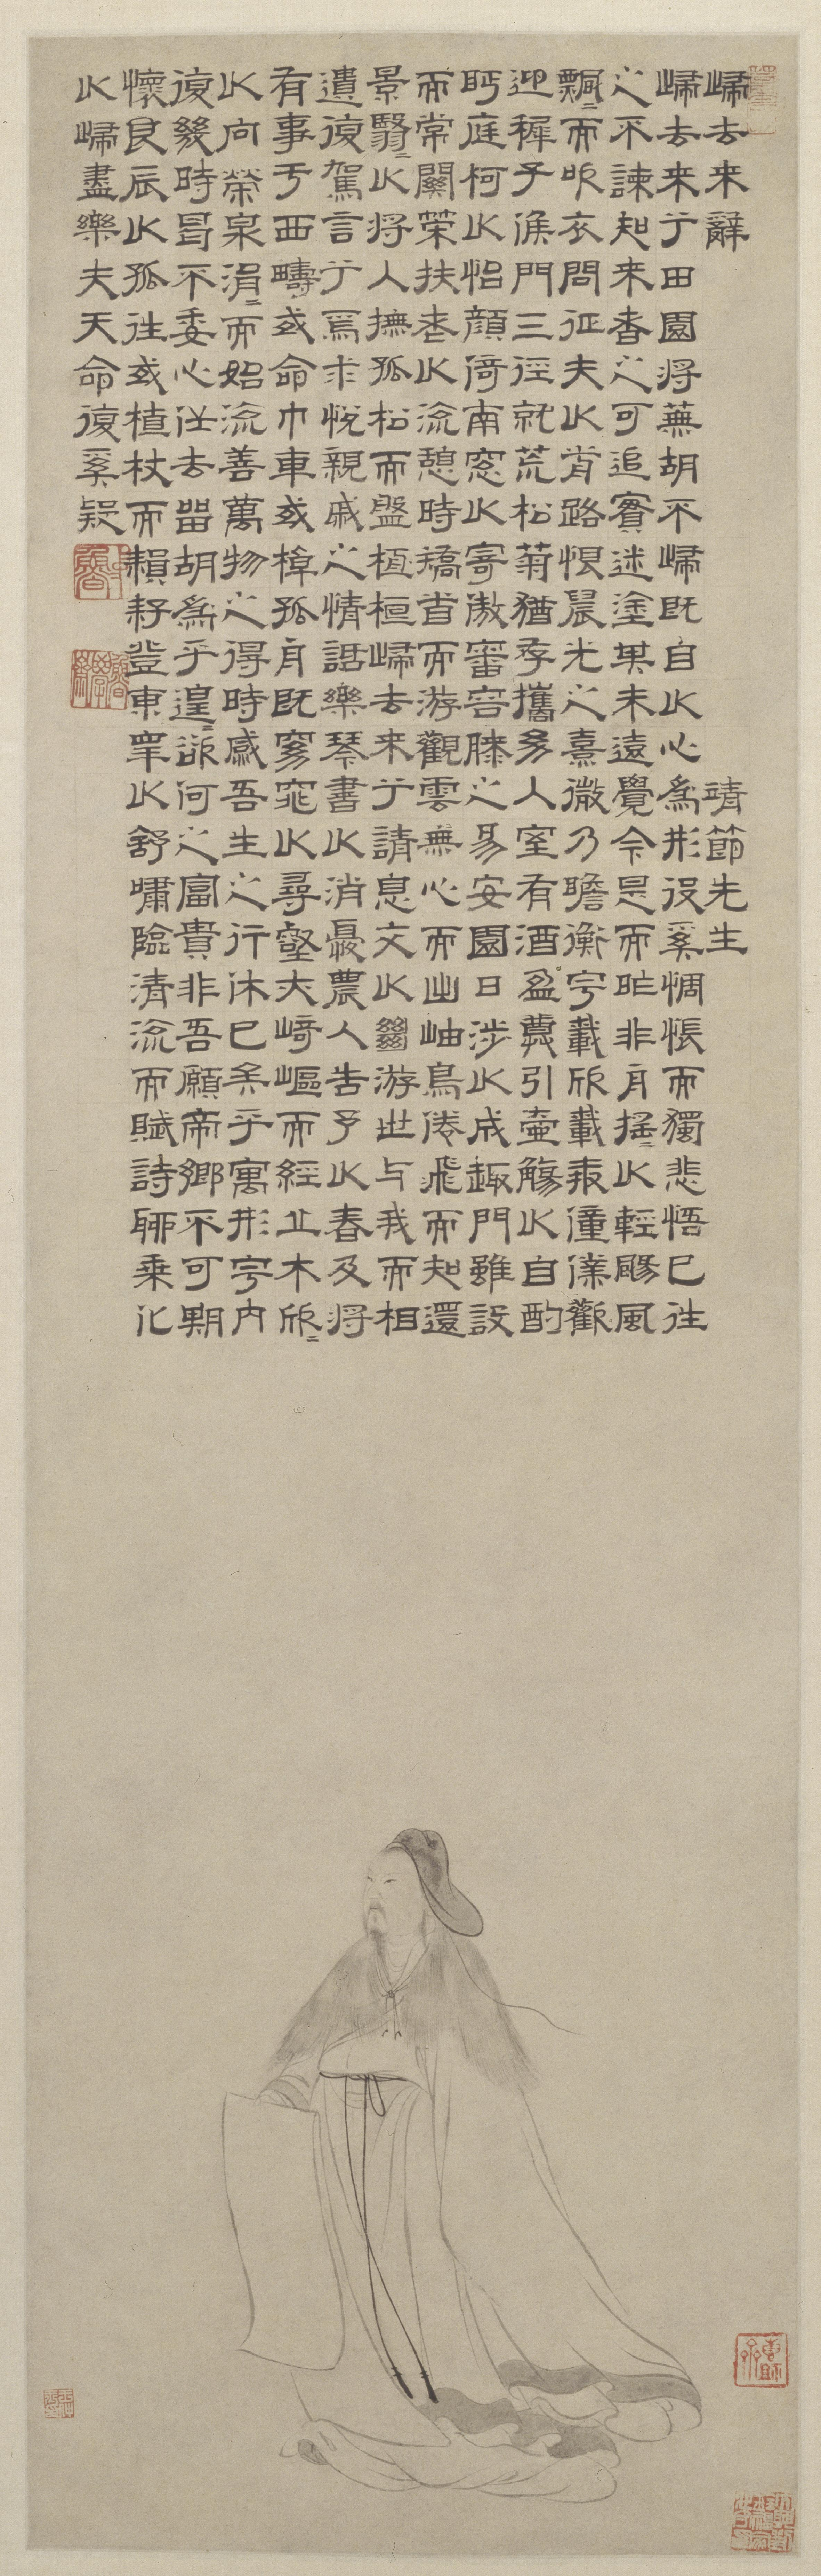 歸去来辭　靖節先生
歸去来兮田園将蕪胡不歸既自以心為形役奚惆悵而獨悲悟已往
之不諫知来者之可追實迷塗其未遠覺今是而昨非舟搖〻以輕颺風
飄〻而吹衣問征夫以前路恨晨光之熹微乃瞻衡宇載欣載奔僮僕歡
迎稚子候門三徑就荒松菊猶存攜幼入室有酒盈樽引壺觴以自酌
眄庭柯以怡顏倚南窓以寄傲審容膝之易安園日涉以成趣門雖設
而常關策扶老以流憩時矯首而游觀雲無心而出岫鳥倦飛而知還
景翳〻以将入撫孤松而盤桓桓歸去来兮請息交以絕游世与我而相
遺復駕言兮焉求悅親戚之情話樂琴書以消憂農人告予以春及将
有事于西疇或命巾車或棹孤舟既窈窕以尋壑亦崎嶇而經丘木欣〻
以向榮泉涓〻而始流善萬物之得時感吾生之行休已矣乎寓形宇内
復幾時曷不委心任去留胡為乎遑〻欲何之富貴非吾願帝鄉不可期
懷良辰以孤往或植杖而耘耔登東皋以舒嘯臨清流而賦詩聊乘化
以歸盡樂夫天命復奚疑